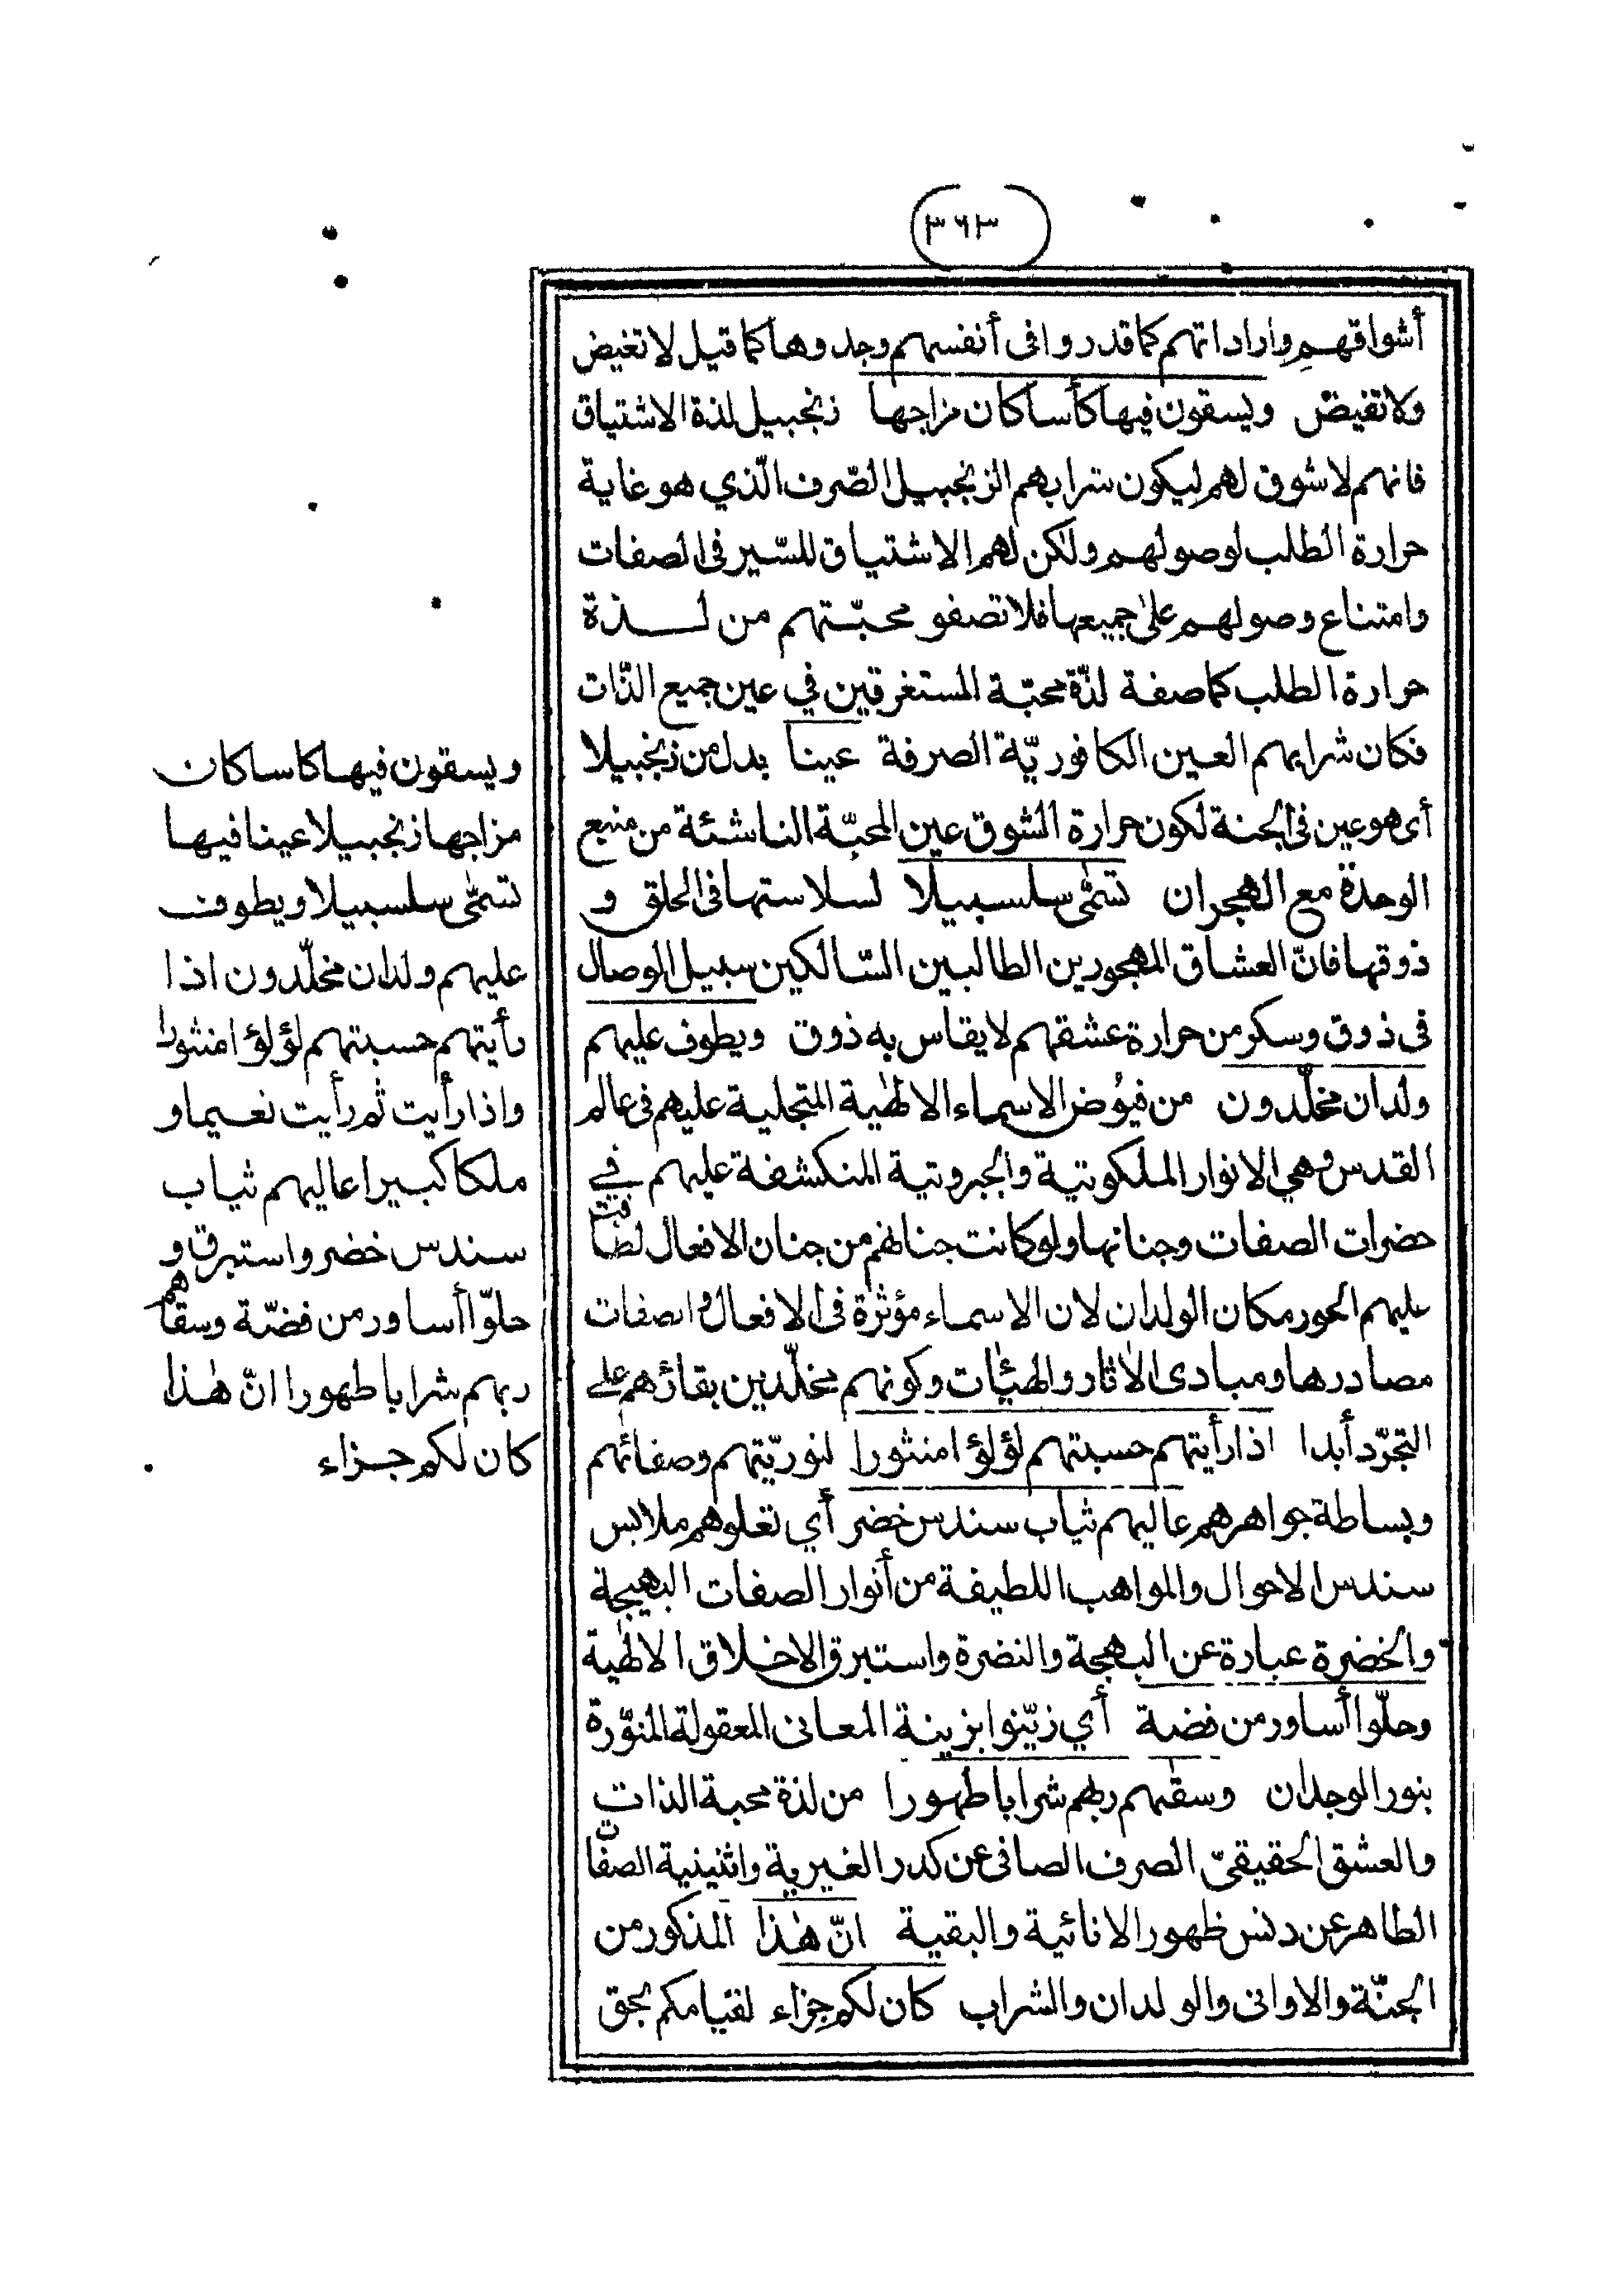 (٣٦٣)
أشواقهم واراداتهم كما قدروا في أنفسهم وجدوها كما قيل لا تغيض
ولا تفيض ويسقون فيها كأسا كان مزاجها زنجبيل لذة الاشتياق
فانهم لا شوق لهم ليكون شرابهم الزنجبيل الصّرف الّذي هو غاية
حرارة الطلب لوصولهم ولكن لهم الاشتياق للسّير في الصفات
وامتناع وصولهم على جميعها فلا تصفو محبّتهم من لذة
حرارة الطلب كما صفة لذّة محبّة المستغرقين في عين جميع الذّات
فكان شرابهم العين الكافوريّة الصرفة عينا بدل من زنجبيلا
أي هو عين في الجنة لكون حرارة الشوق عين المحبّة الناشئة من منبع
الوحدة مع الهجران تسمّى سلسبيلا لسلاستها في الحلق و
ذوقها فانّ العشاق المهجورين الطالبين السّالكين سبيل الوصال
في ذوق وسكر من حرارة عشقهم لا يقاس به ذوق ويطوف عليهم
ولدان مخلّدون من فيوض الاسماء الالهٰية المتجلية عليهم في عالم
القدس وهي الانوار الملكوتية والجبروتية المنكشفة عليهم في
حضرات الصفات وجناتها ولو كانت جناتهم من جنان الافعال لطافت
عليهم الحور مكان الولدان لان الاسماء مؤثرة في الافعال والصفات
مصادرها ومبادى الاٰثار والهيٰات وكونهم مخلّدين بقاؤهم على
التجرّد أبدا اذا رأيتهم حسبتهم لؤلؤا منثورا لنوريّتهم وصفائهم
وبساطة جواهرهم عاليهم ثياب سندس خضر أي تعلوهم ملابس
سندس الاحوال والمواهب اللطيفة من أنوار الصفات البهيجة
والخضرة عبارة عن البهجة والنضرة واستبرق الاخلاق الالهٰية
وحلّوا أساور من فضة أي زيّنوا بزينة المعاني المعقولة المنوّرة
بنور الوجدان وسقٰهم ربهم شرابا طهورا من لذة محبة الذات
والعشق الحقيقيّ الصرف الصافي عن كدر الغيرية واثنينية الصفات
الطاهر عن دنس ظهور الانائية والبقية انّ هٰذا المذكور من
الجنّة والاواني والولدان والشراب كان لكم جزاء لقيامكم بحق
ويسقون فيها كاسا كان
مزاجها زنجبيلا عينا فيها
تسمّٰى سلسبيلا ويطوف
عليهم ولدان مخلّدون اذا
رأيتهم حسبتهم لؤلؤا منثورا
واذا رأيت ثم رأيت نعيما و
ملكا كبيرا عاليهم ثياب
سندس خضر واستبرق و
حلّوا أساور من فضّة وسقاهم
ربهم شرابا طهورا انّ هٰذا
كان لكم جزاء